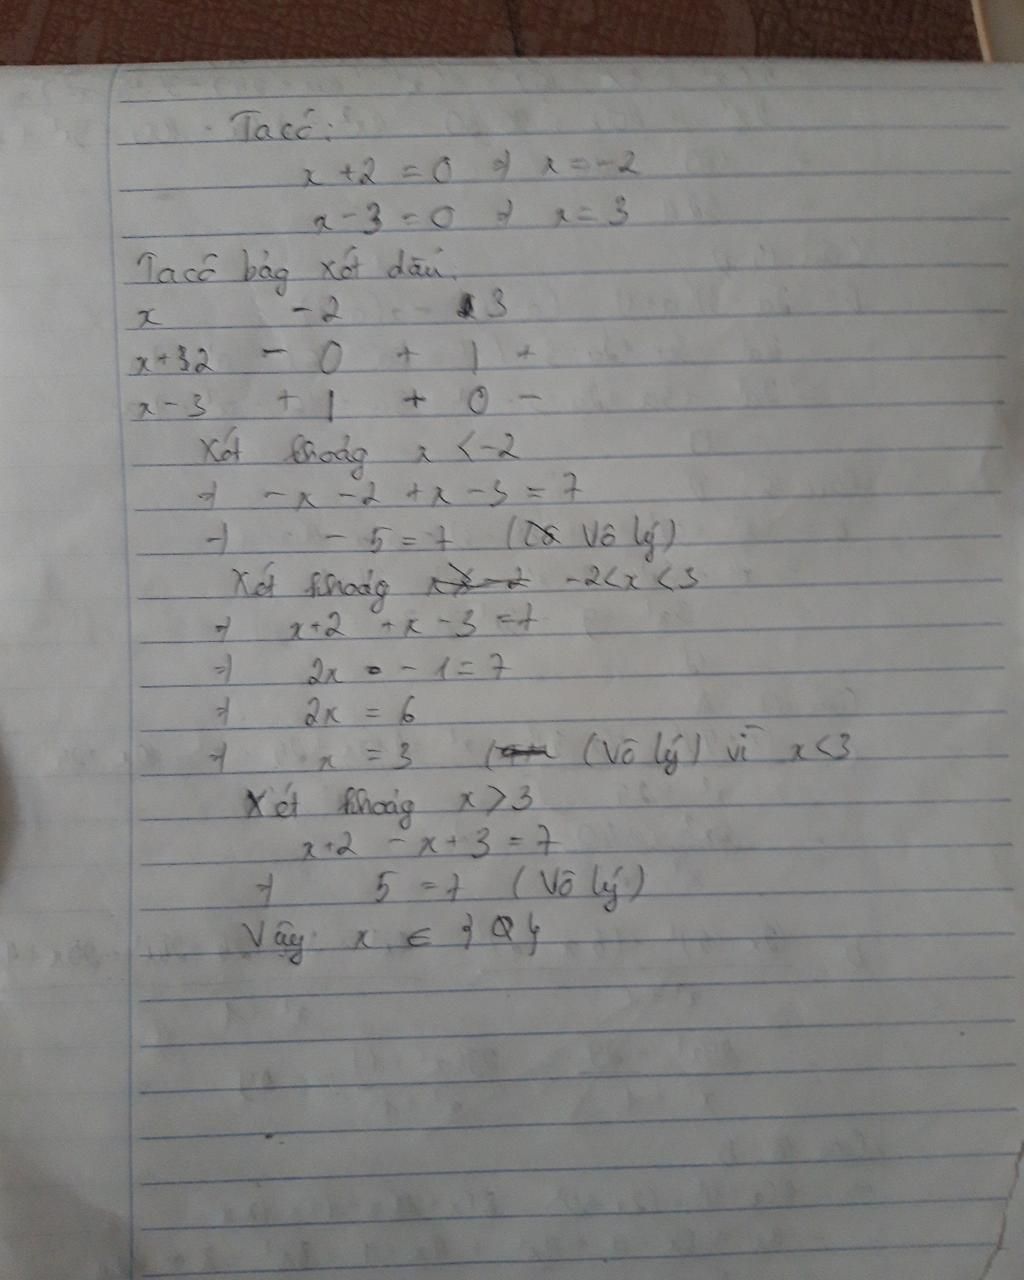 Ta có:
x + 2 = 0 => x = -2
x - 3 = 0 => x = 3
Ta có bảg xét dấu.
x -2 3
x+32 - 0 + | +
x-3 + | + 0 -
Xét khoảg x < -2
=> -x - 2 + x - 3 = 7
=> - 5 = 7 (Vô lý)
Xét khoảg -2 < x < 3
=> x+2 + x - 3 = 7
=> 2x - 1 = 7
=> 2x = 6
=> x = 3 (Vô lý) vì x < 3
Xét khoảg x > 3
x+2 - x + 3 = 7
=> 5 = 7 (Vô lý)
Vậy x ∈ {Ø}